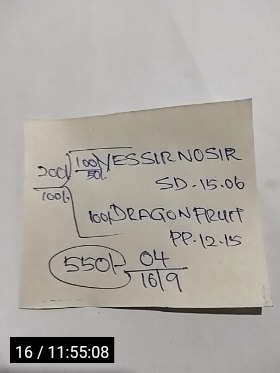 200/- 100/- YESSIRNOSIR
50/-
100/-
SD.15.06
100/- DRAGONFRUIT
PP.12.15
550/- 04
16/9
16 / 11:55:08